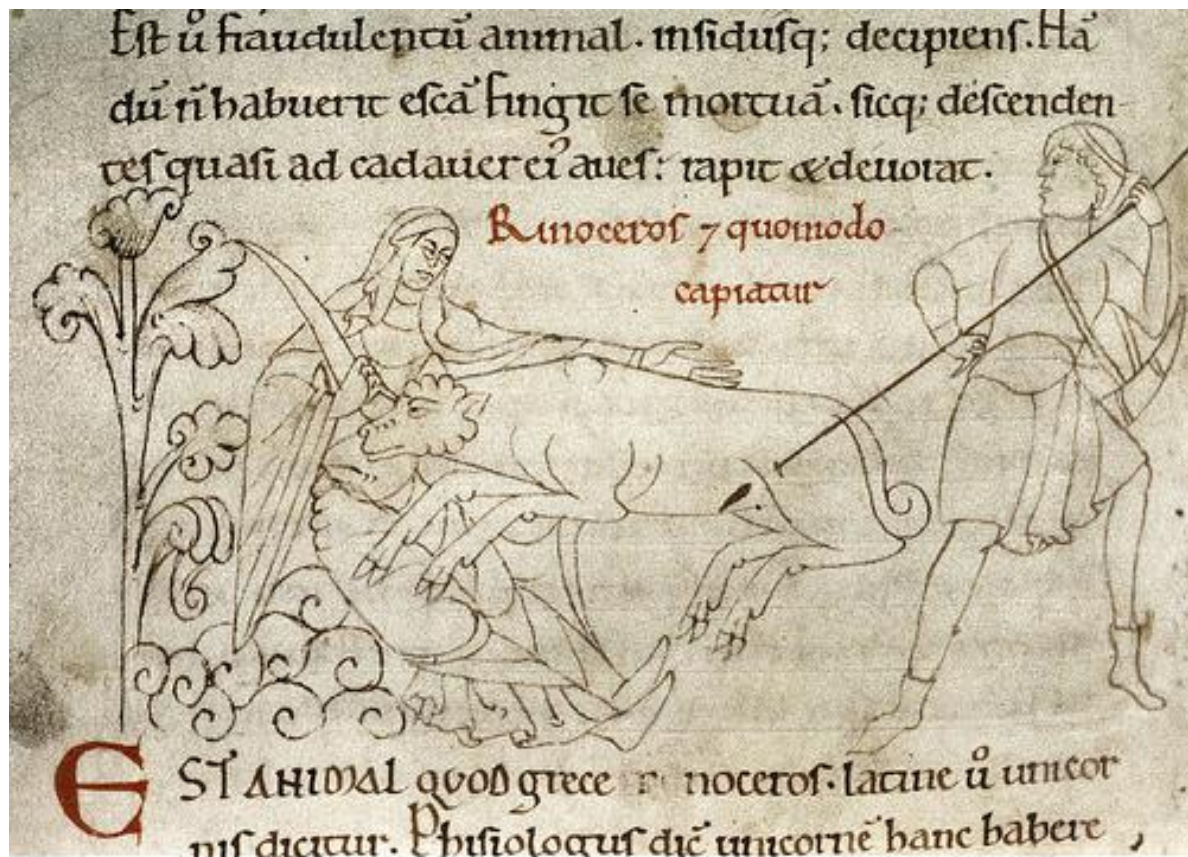 Est ů fraudulentū animal. insidiisq; decipiens. Hā
dū n̄ habuerit escā fingit se mortuā. sicq; descenden-
tes quasi ad cadauer ei᾽ aues: rapit & deuorat.
Rinoceros ⁊ quomodo
capiatur
EST ANIMAL QVOD grece r noceros. latine ů unicor
nis dicitur. Phisiologus dic̄ unicornē hanc habere